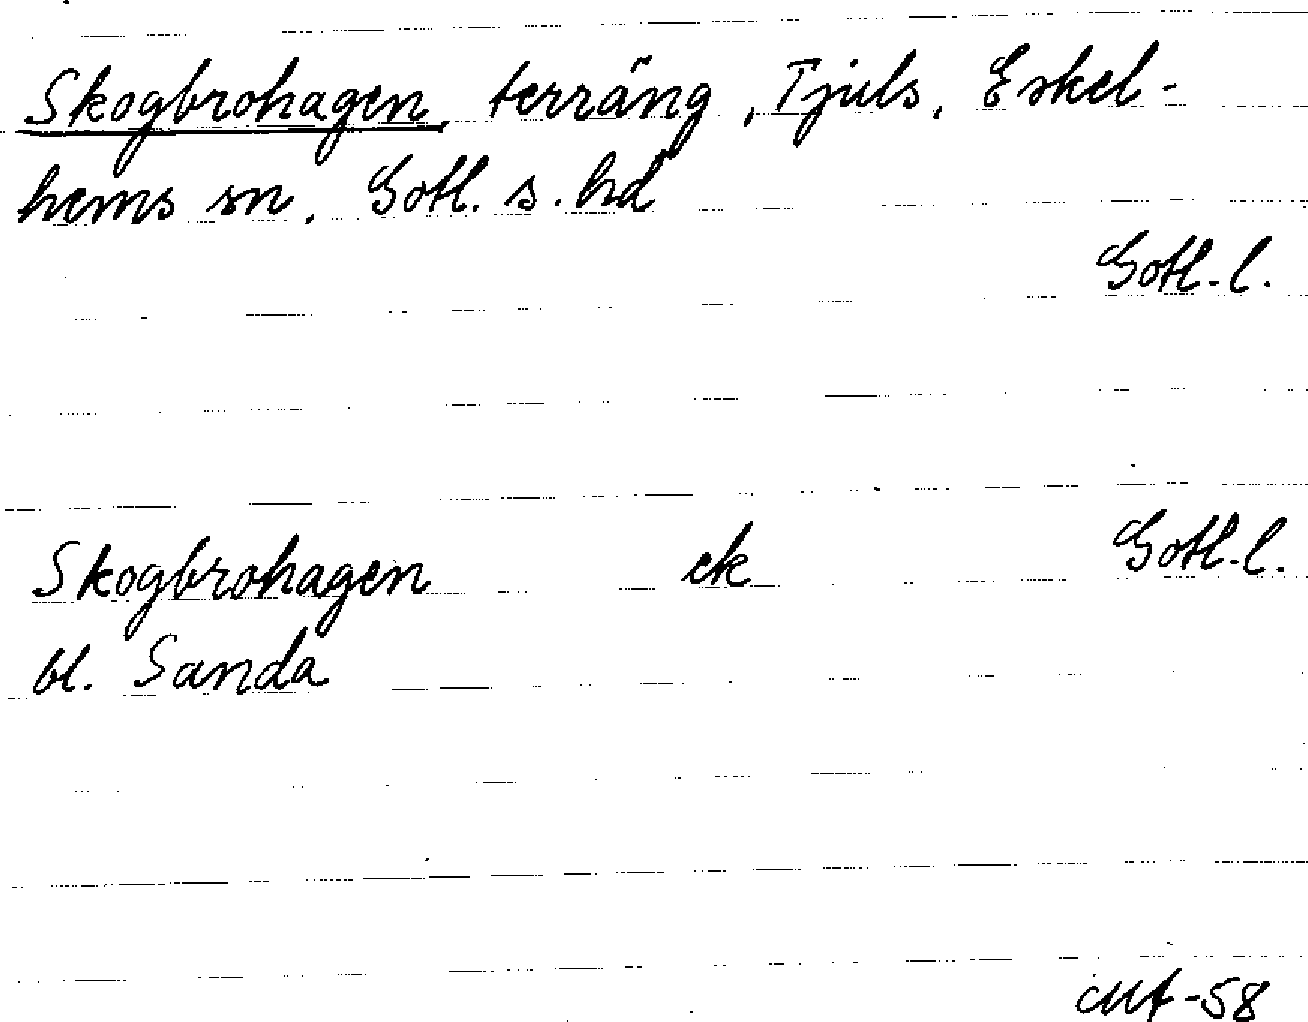 Skogbrohagen, terräng, Tjuls, Eskel-
hems sn. Gotl. s. hd
Gotl. l.
Skogbrohagen ek Gotl. l.
bl. Sanda
-58